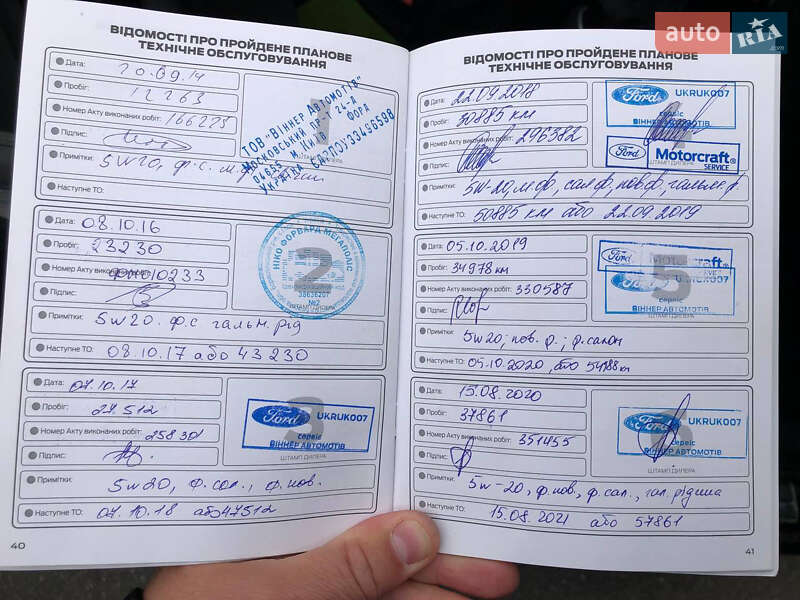 auto RIA .com
ВІДОМОСТІ ПРО ПРОЙДЕНЕ ПЛАНОВЕ
ТЕХНІЧНЕ ОБСЛУГОВУВАННЯ
Дата: 20.09.14
Пробіг: 12263
Номер Акту виконаних робіт: 166225
Підпис:
Примітки: 5W20, ф.с. м.
Наступне ТО:
1
ТОВ "ВІННЕР АВТОМОТІВ"
Московський пр-т 24-А
04655 м.
Україна ЄДРПОУ 33496598
ФОРА
Дата: 08.10.16
Пробіг: 23230
Номер Акту виконаних робіт: 10233
Підпис:
Примітки: 5w20. ф.с гальм. рід
Наступне ТО: 08.10.17 або 43 230
2
НІКО ФОРВАРД МЕГАПОЛІС
38636207
№2
ШТАМП ДИЛЕРА
Дата: 07.10.17
Пробіг: 27512
Номер Акту виконаних робіт: 258301
Підпис:
Примітки: 5w20, ф. сал., ф. пов.
Наступне ТО: 07.10.18 або 47512
3
Ford UKRUK007
сервіс
ВІННЕР АВТОМОТІВ
ШТАМП ДИЛЕРА
40
ВІДОМОСТІ ПРО ПРОЙДЕНЕ ПЛАНОВЕ
ТЕХНІЧНЕ ОБСЛУГОВУВАННЯ
Дата: 22.09.2018
Пробіг: 30885 км
Номер Акту виконаних робіт: 296382
Підпис:
Примітки: 5w-20, м.ф., сал.ф, пов.ф, гальм.р.
Наступне ТО: 50885 км або 22.09.2019
Ford UKRUK007
сервіс
ВІННЕР АВТОМОТІВ
Ford Motorcraft
SERVICE
ШТАМП ДИЛЕРА
Дата: 05.10.2019
Пробіг: 34978 км
Номер Акту виконаних робіт: 330587
Підпис:
Примітки: 5w20; пов. ф.; ф. салон
Наступне ТО: 05.10.2020, або 54988 км
5
Ford Motorcraft
Ford UKRUK007
сервіс
ВІННЕР АВТОМОТІВ
ШТАМП ДИЛЕРА
Дата: 15.08.2020
Пробіг: 37861
Номер Акту виконаних робіт: 351455
Підпис:
Примітки: 5w-20, ф. пов, ф. сал., гал. рідина
Наступне ТО: 15.08.2021 або 57861
Ford UKRUK007
сервіс
ВІННЕР АВТОМОТІВ
ШТАМП ДИЛЕРА
41